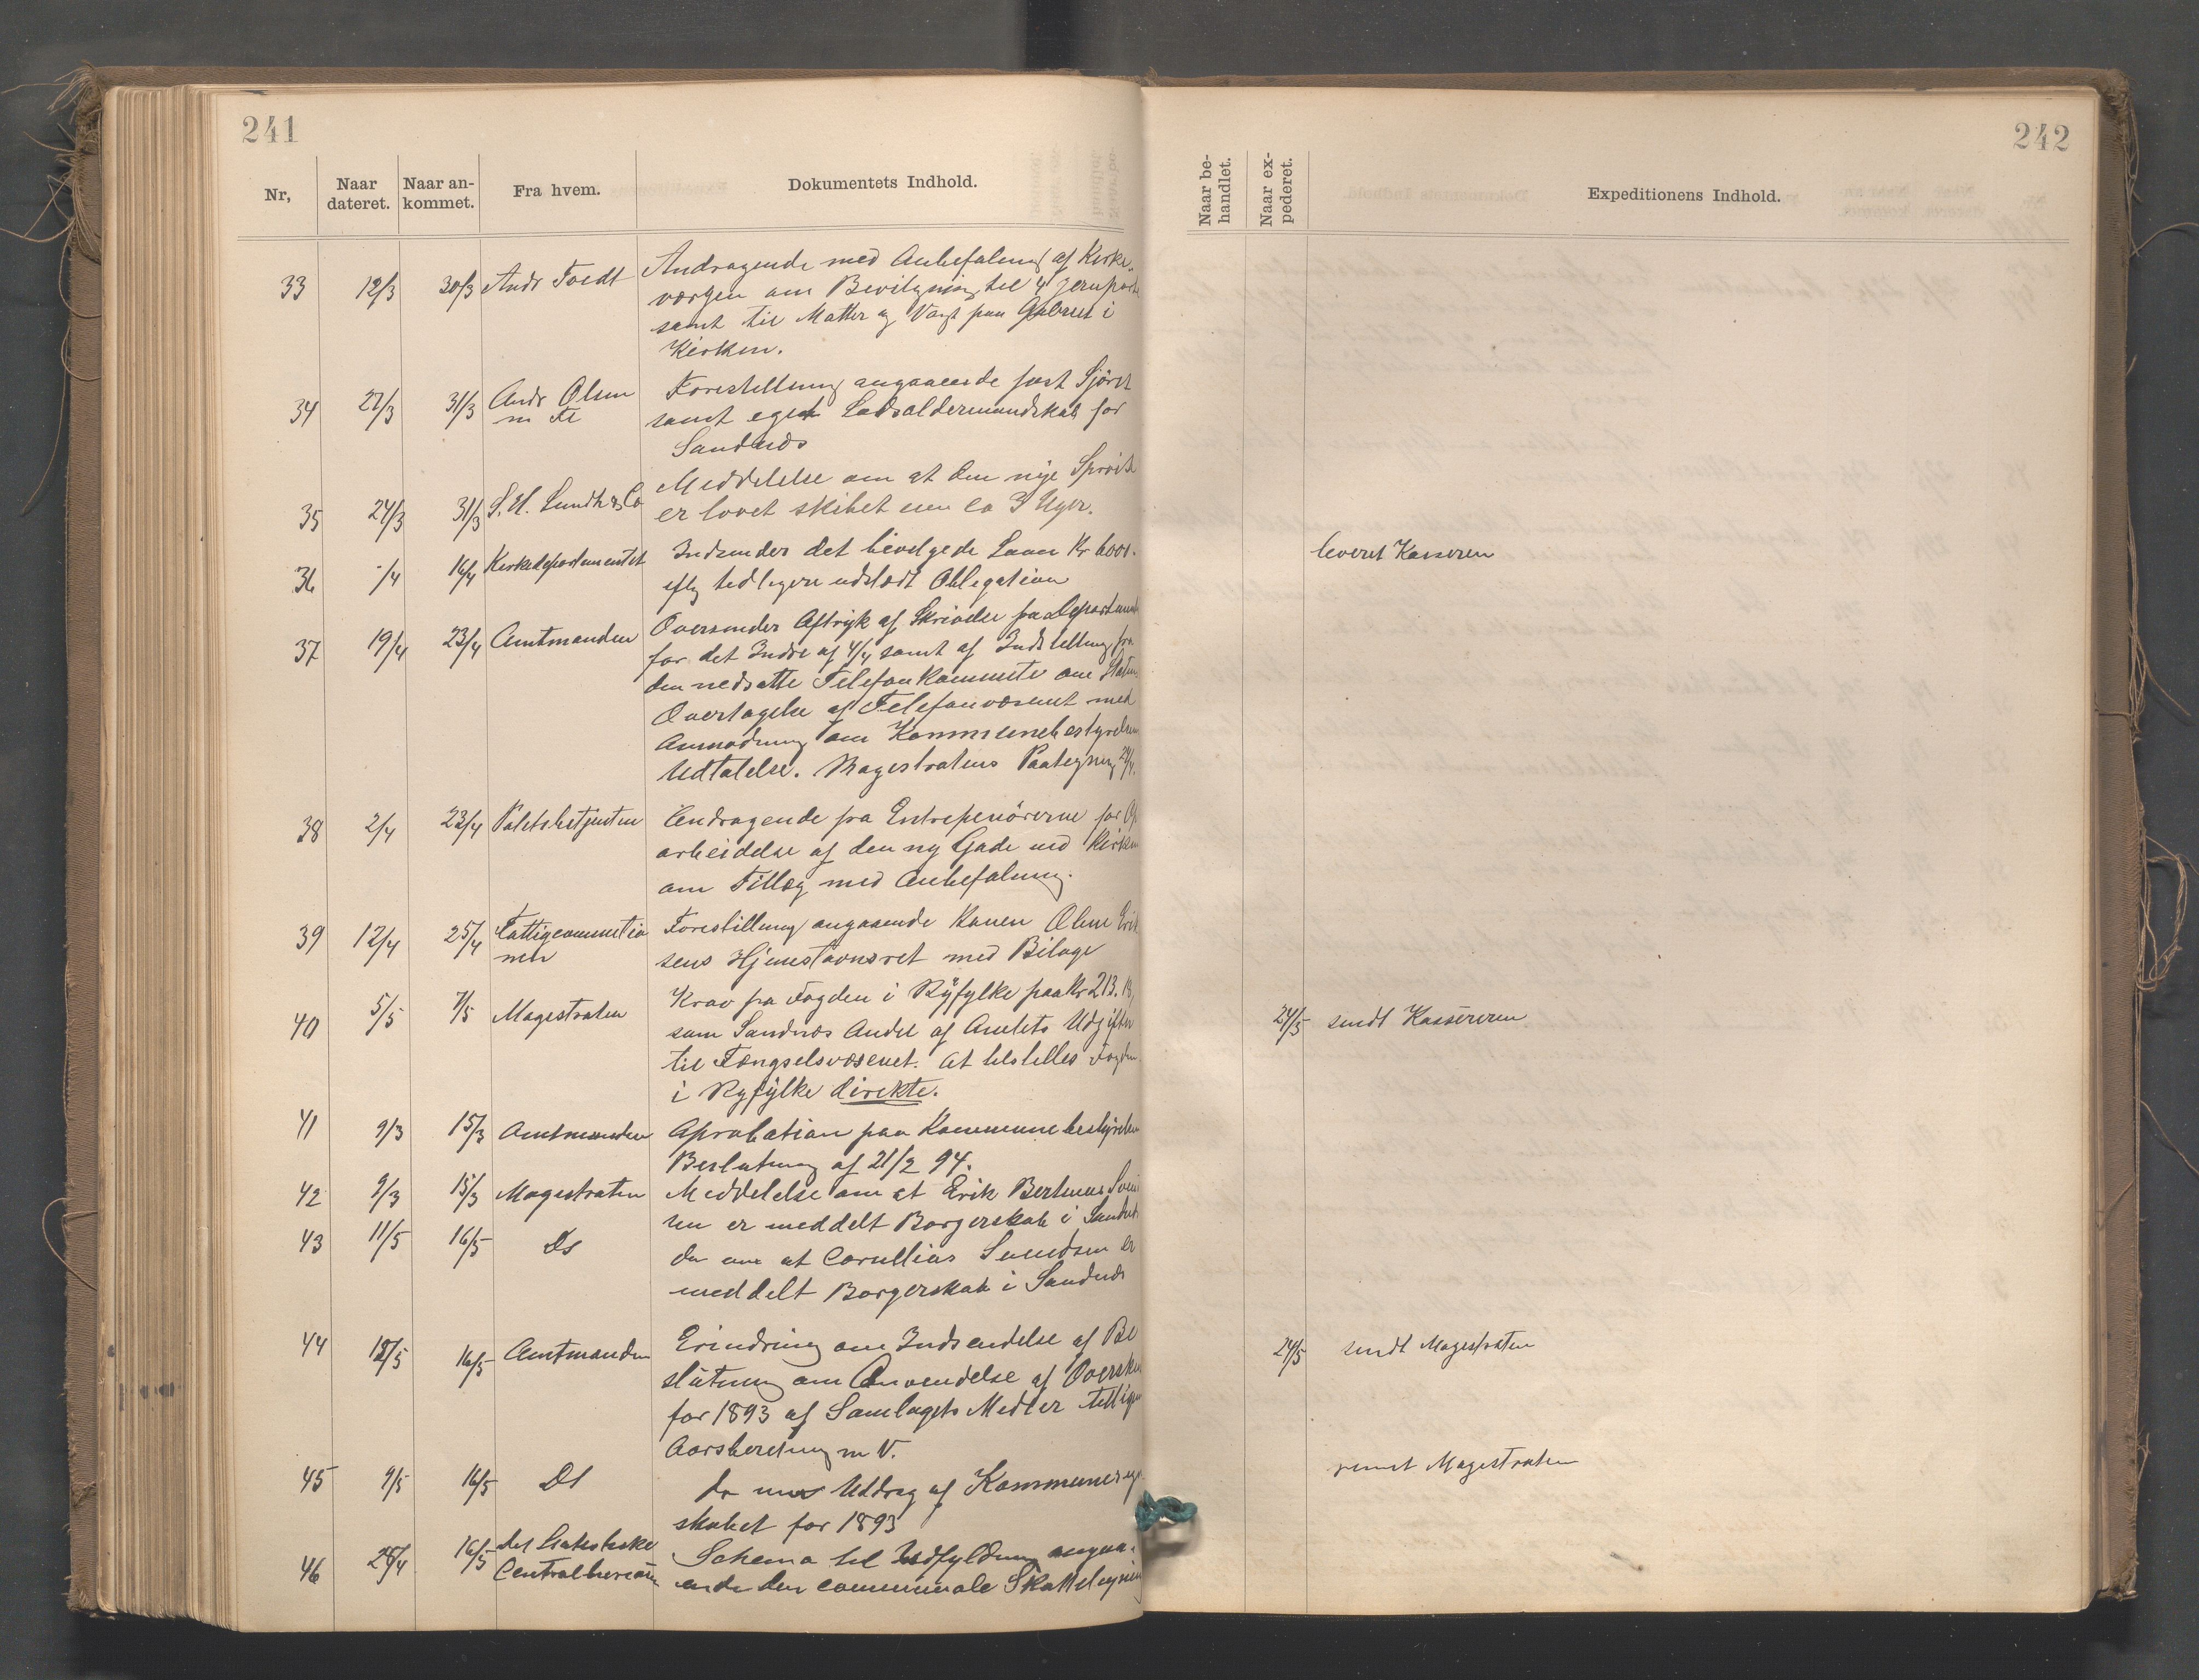 241
Nr,
Naar dateret.
Naar ankommet.
Fra hvem.
Dokumentets Indhold.
33 12/3 30/3 Andr Foedt Andragende med Anbefaling af Kirke-
værgen om Bevilgning til 4
samt til Matter og Vægt paa i
Kirken.
34 27/3 31/3 Andr Olsen Forestilling angaaende fast
m Fl samt eget Lodsaldermandskab for
Sandnæs
35 24/3 31/3 S. H. Lundh & Co Meddelelse om at den nye
er lovet skibet om ca 3 Uger.
36 -/4 16/4 Kirkedepartementet Indsender det bevilgede Laan Kr 6000.
eftg tidligere udstædt Obligation
37 19/4 23/4 Amtmanden Oversender Aftryk af Skrivelse fra Departement
for det Indre af 4/4 samt af Indstilling fra
den nedsatte Telefon Kommite om Statens
Overtagelse af Telefonvæsenet med
Anmodning om Kommunebestyrelsens
Udtalelse. Magestratens Paategning 24/4.
38 2/4 23/4 Politibetjenten Andragende fra Entrepenörerne for Op
arbeidelse af den ny Gade ved Kirken
om Tillæg med Anbefaling.
39 12/4 25/4 Fattigcommissio Forestilling angaaende Konen Oline Erik
nen sens Hjemstavnsret med Bilage
40 5/5 7/5 Magestraten Krav fra Fogden i Ryfylke paa Kr 213.
som Sandnæs Andel af Amtets Udgifter
til Fængselsvæsenet. At tilstilles Fogden
i Ryfylke direkte.
41 9/3 15/3 Amtmanden Aprobation paa Kommunebestyrelsen
Beslutning af 21/2 94.
42 9/3 15/3 Magestraten Meddelelse om at Erik Bertinus Svend
sen er meddelt Borgerskab i Sandnæs
43 11/5 16/5 Ds Do om at Cornelius Svendsen er
meddelt Borgerskab i Sandnæs
44 12/5 16/5 Amtmanden Erindring om Indsendelse af Be
slutning om Anvendelse af Oversku
for 1893 af Samlagets Midler tillige
Aarsberetning m V.
45 9/5 16/5 Ds Do om Uddrag af Kommuneregn
skabet for 1893
46 25/4 16/5 Det Statistiske Schema til Udfyldning angaa-
Centralbureau ende den communale Skatteligning
242
Naar behandlet.
Naar expederet.
Expeditionens Indhold.
leveret Kasseren
24/5 sendt Kassereren
24/5 sendt Magestraten
sendt Magestraten